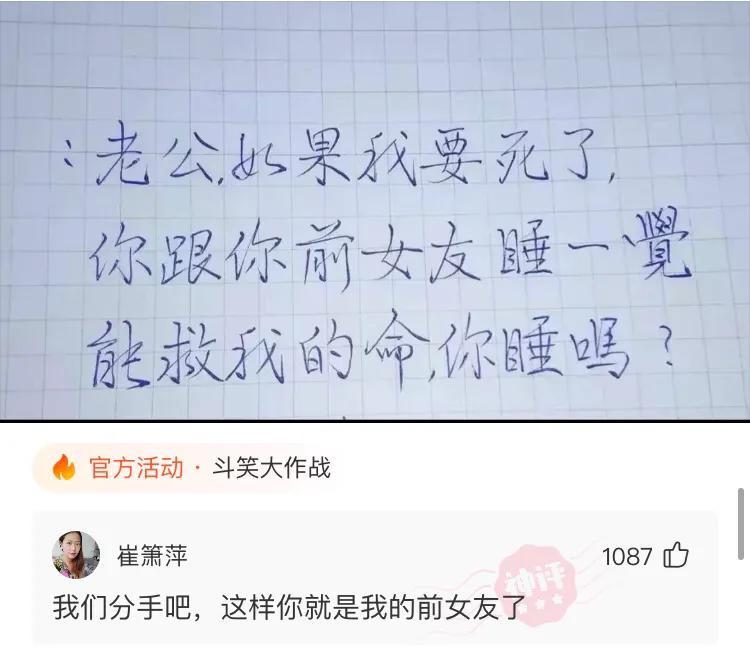 ：老公,如果我要死了,
你跟你前女友睡一覺
能救我的命,你睡嗎？
官方活动·斗笑大作战
崔箫萍
1087
神评
我们分手吧，这样你就是我的前女友了